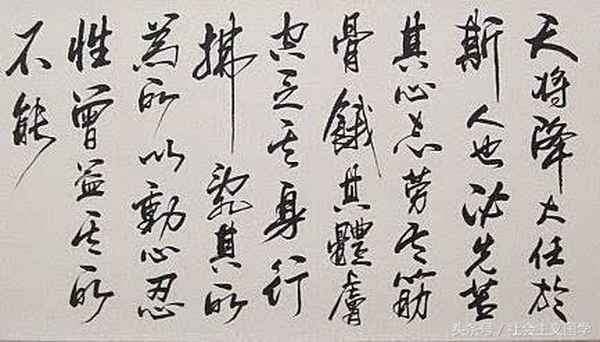 天将降大任於
斯人也必先苦
其心志劳其筋
骨餓其體膚
空乏其身行
拂亂其所
為所以動心忍
性曾益其所
不能
头条号／社会主义国学